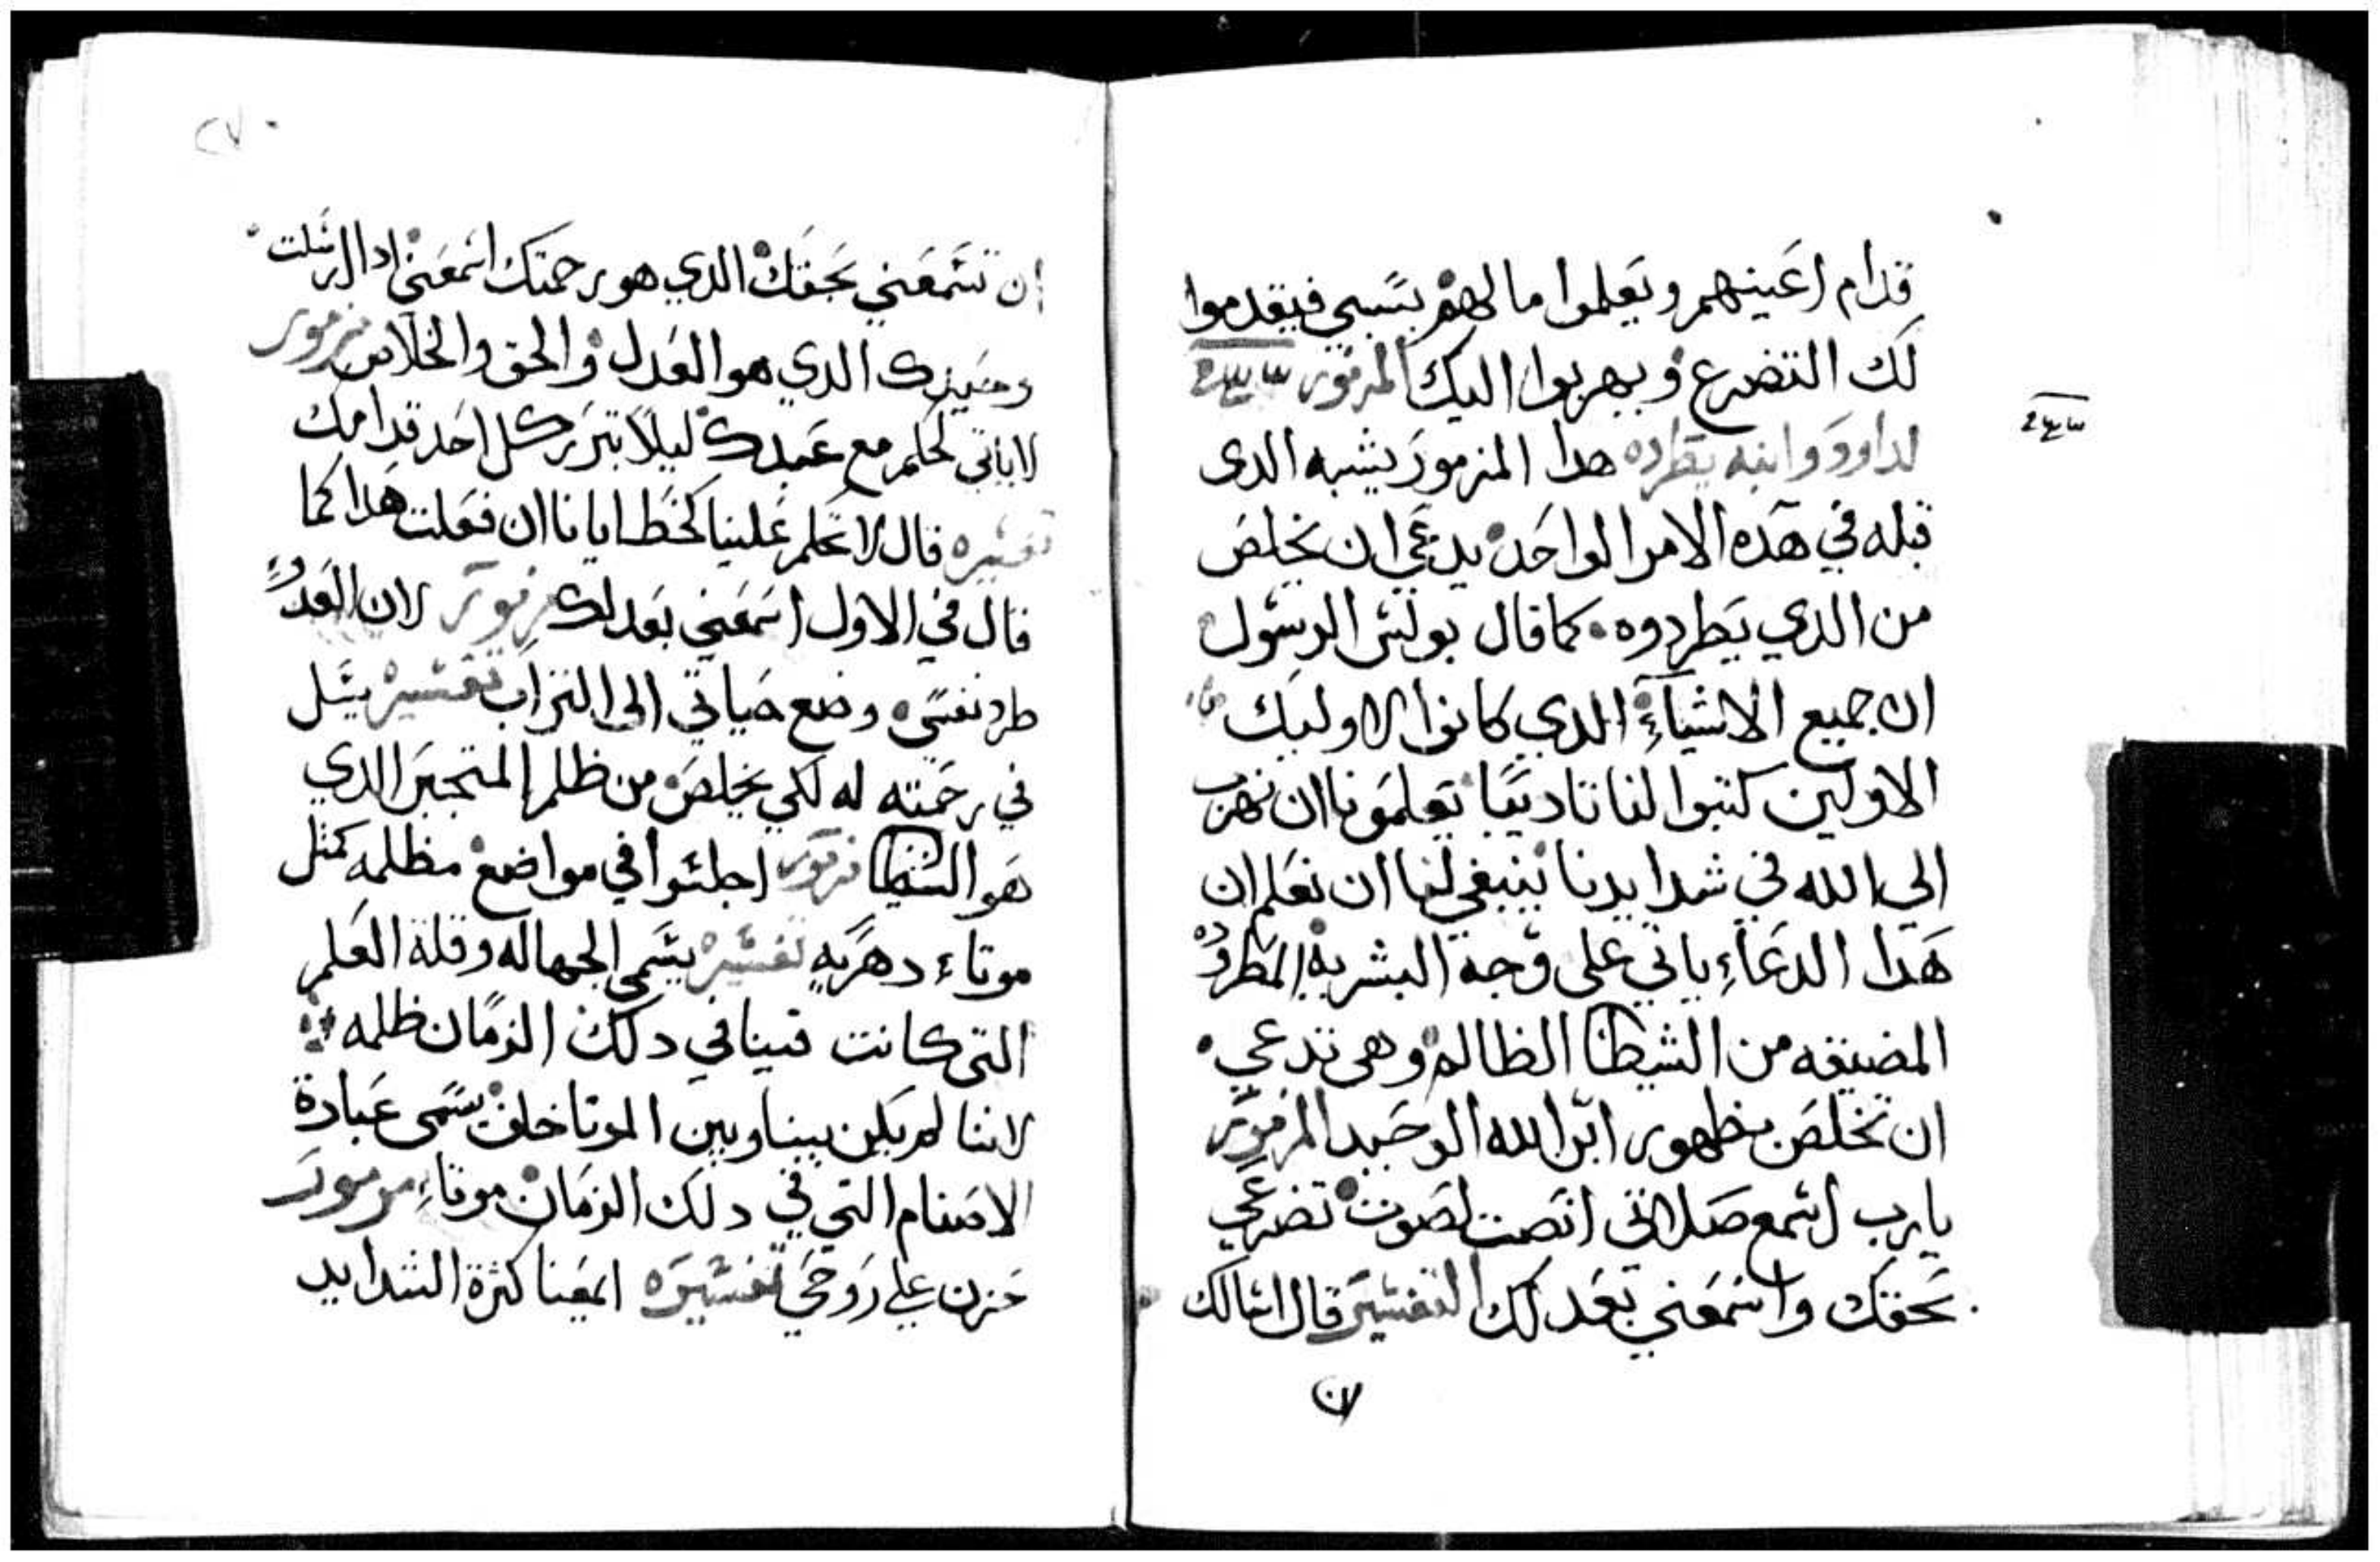 قدام اعينهم ويعلموا ما لهم بسببي فيقدموا
لك التضرع ويهربوا اليك المزمور
لداوود وابنه يطرده هدا المزمور يشبه الدى
قبله في هده الامر الواحد يدعي ان يخلص
من الدي يطردوه كما قال بولس الرسول
ان جميع الاشياء الدي كانوا الاوليك
الاولين كتبوا لنا تاديبا يعلمونا ان نهرب
الي الله في شدايدنا ينبغي لنا ان نعلم ان
هدا الدعاء ياتي على وجه البشرية المطروده
المضيقه من الشيطان الظالم وهى تدعي
ان تخلص بظهور ابن الله الوحيد المزمور
يارب اسمع صلاتى انصت لصوت تضرعي
بحقك واسمعني بعدلك التفسير قال اسالك
ان تسمعني بحقك الدي هو رحمتك اسمعني ادا ارسلت
وحيدك الدي هو العدل والحق والخلاص مزمور
لا ياتي تحكم مع عبدك ليلا يتزكى كل احد قدامك
تفسيره قال لا تحكم علينا كخطايانا ان فعلت هدا كما
قال في الاول اسمعني بعدلك مزمور لان العدو
طرد نفسي وضع حياتي الى التراب تفسيره يسل
في رحمته له لكي يخلص من ظلم المتجبر الدي
هو الشيطان مزمور اجلسوا في مواضع مظلمه كمثل
موتاء دهريه تفسيره يسمى الجهاله وقلة العلم
التى كانت فينا في دلك الزمان ظلمه
لاننا لم يكن بيننا وبين الموتا خلف سمى عبادة
الاصنام التي في دلك الزمان موتاء مزمور
حزن علي روحي تفسيره المعنا كثرة الشدايد